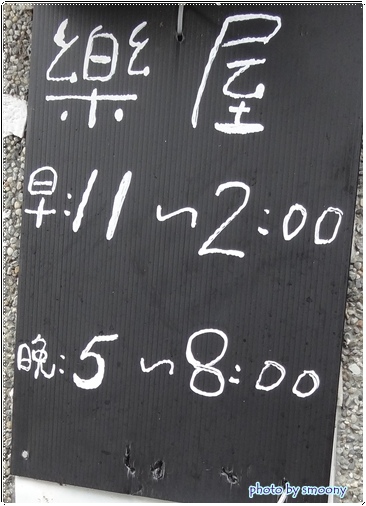 樂屋
早:11~2:00
晚:5~8:00
photo by smoony